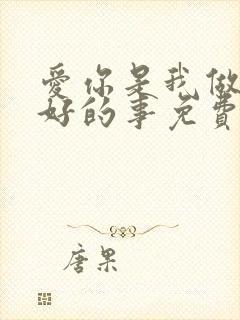 爱你是我做
好的事免费
唐果